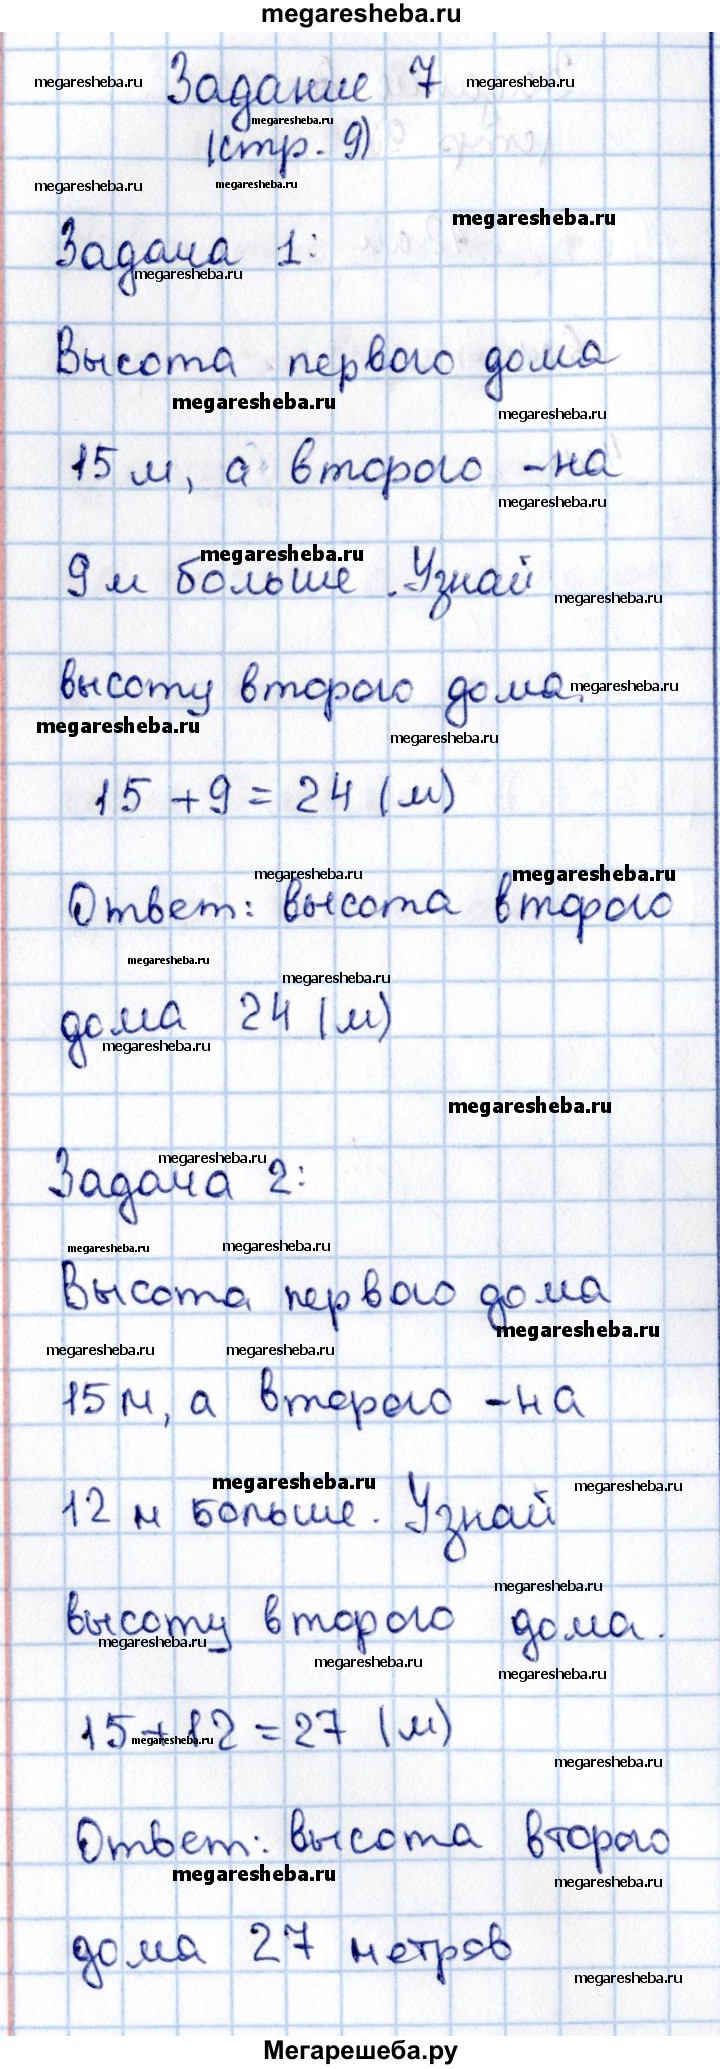 megaresheba.ru
Задание 7
(стр. 9)
Задача 1:
Высота первого дома
15 м, а второго - на
9 м больше. Узнай
высоту второго дома.
15 + 9 = 24 (м)
Ответ: высота второго
дома 24 (м)
Задача 2:
Высота первого дома
15 м, а второго - на
12 м больше. Узнай
высоту второго дома.
15 + 12 = 27 (м)
Ответ: высота второго
дома 27 метров
Мегарешеба.ру